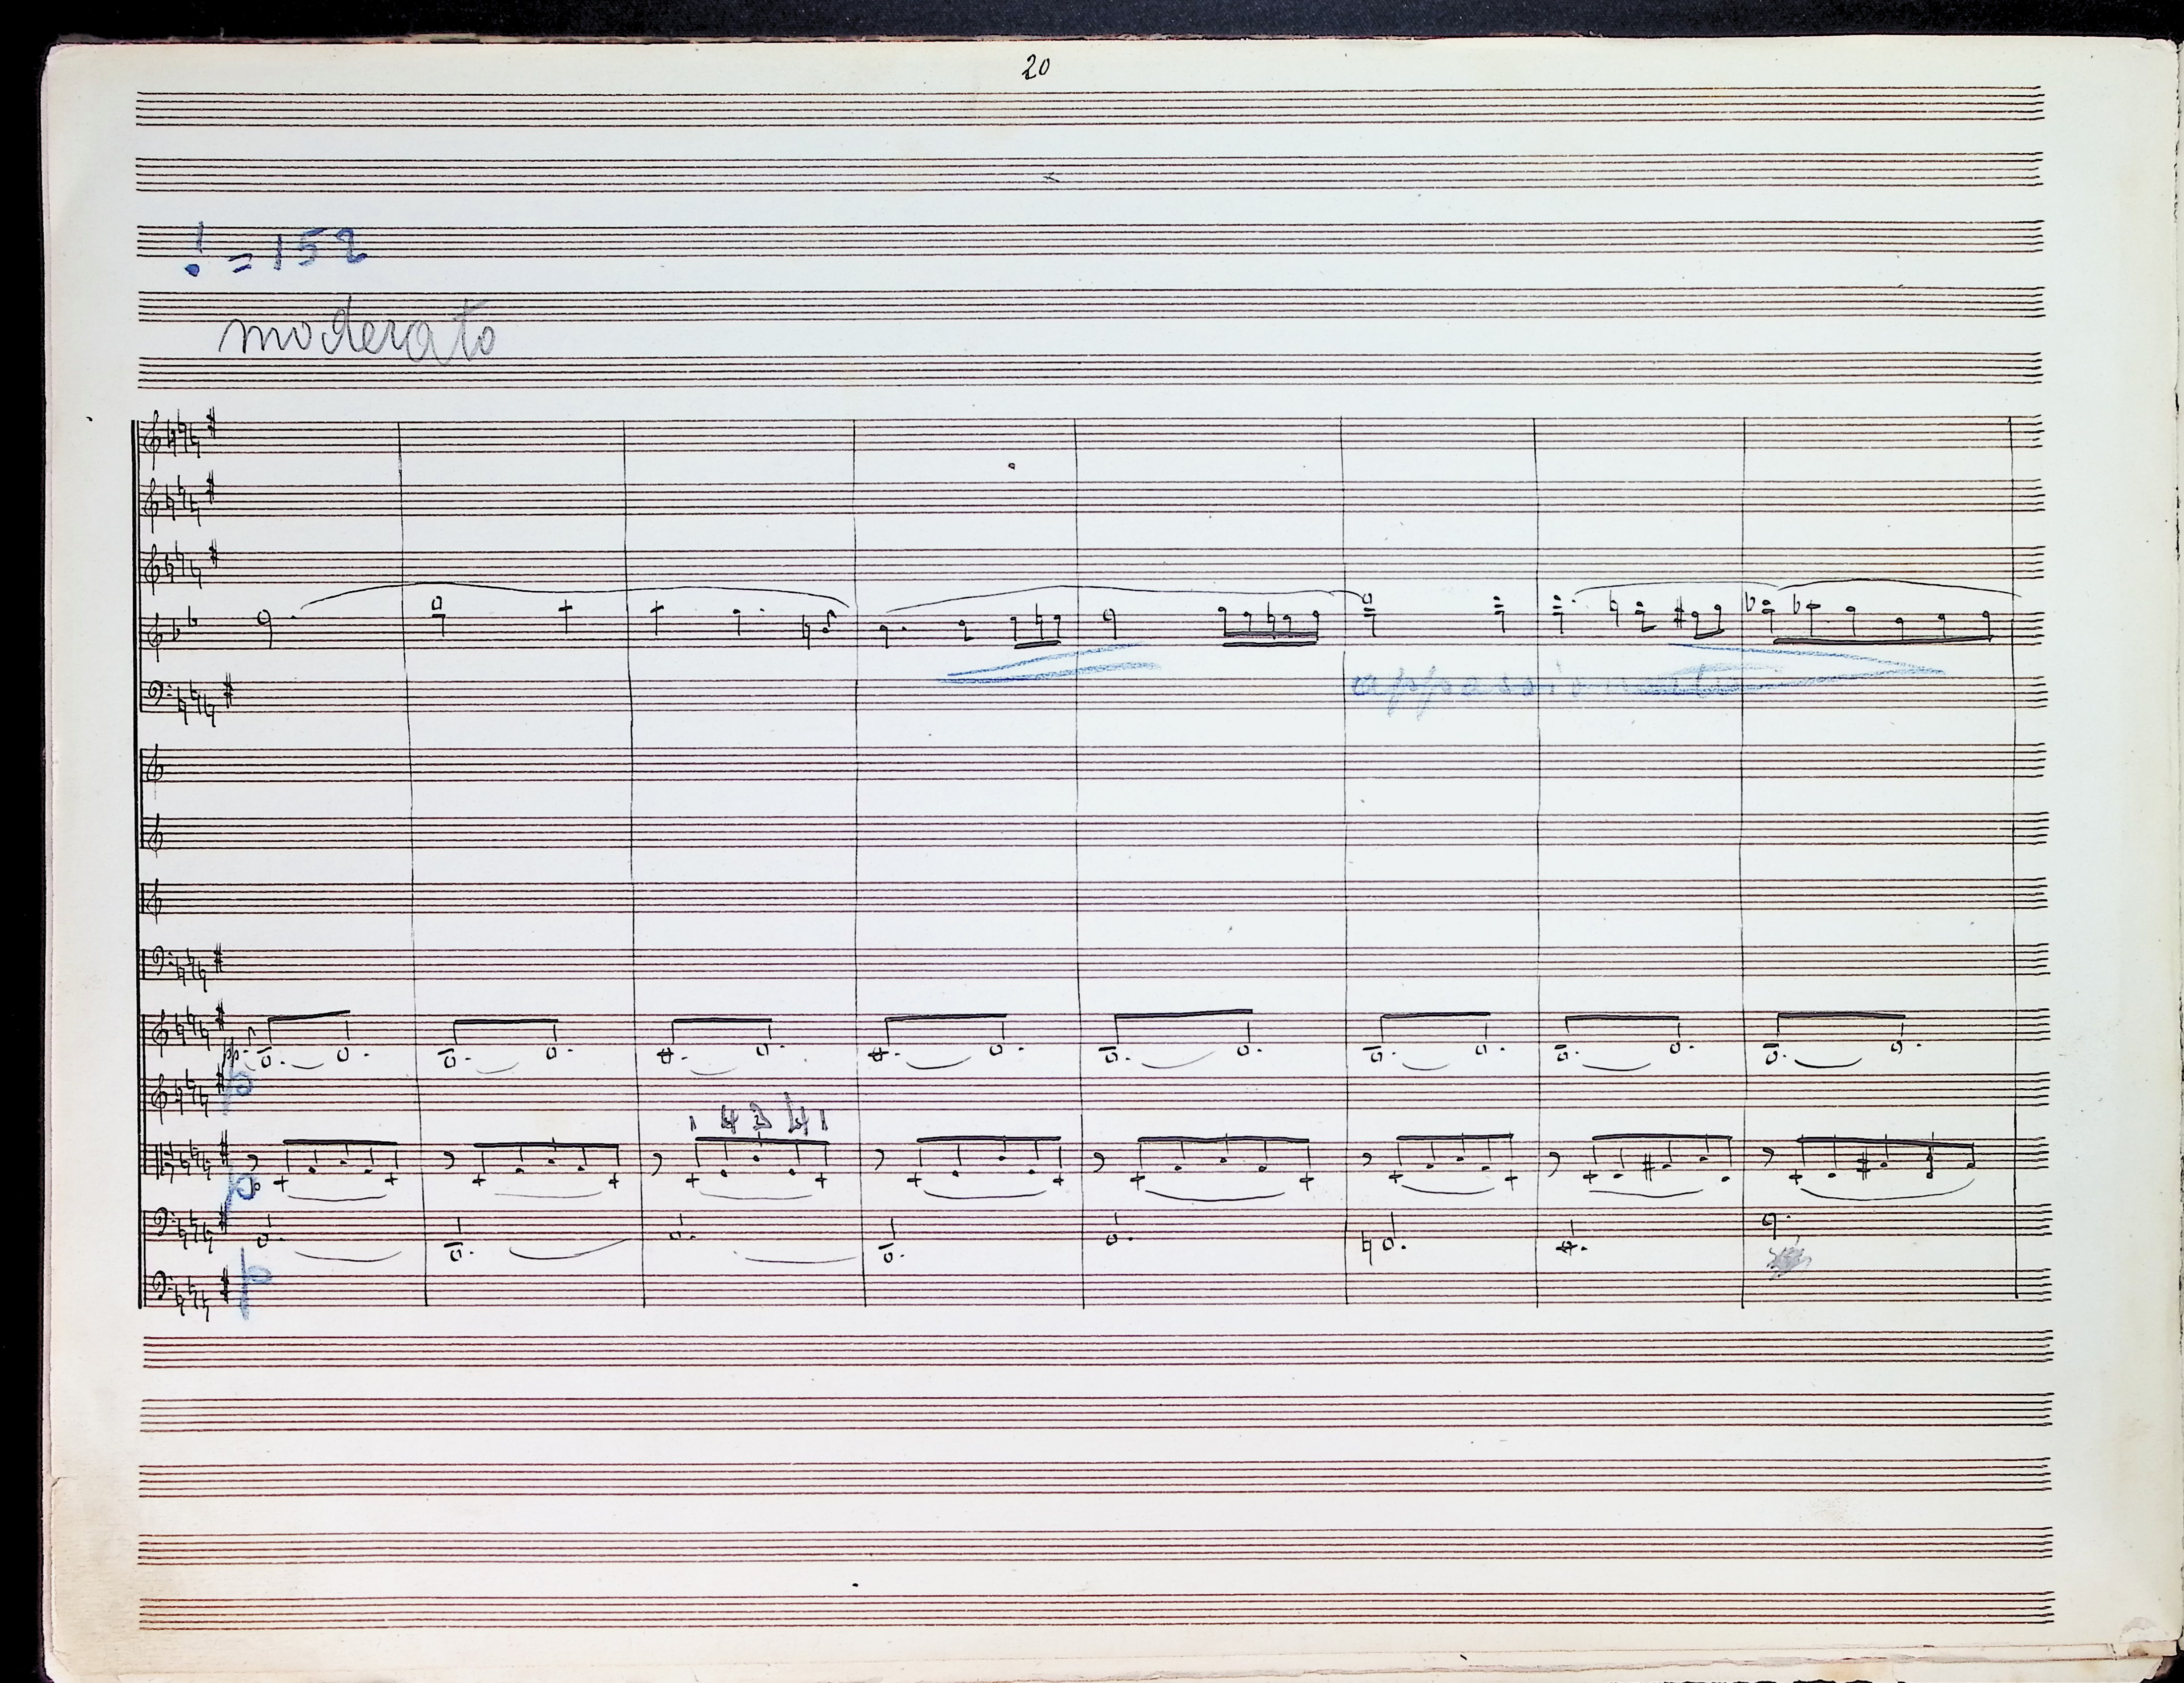 20
♩ = 152
moderato
appassionato
pp
p
1 4 3 4 1
p
p